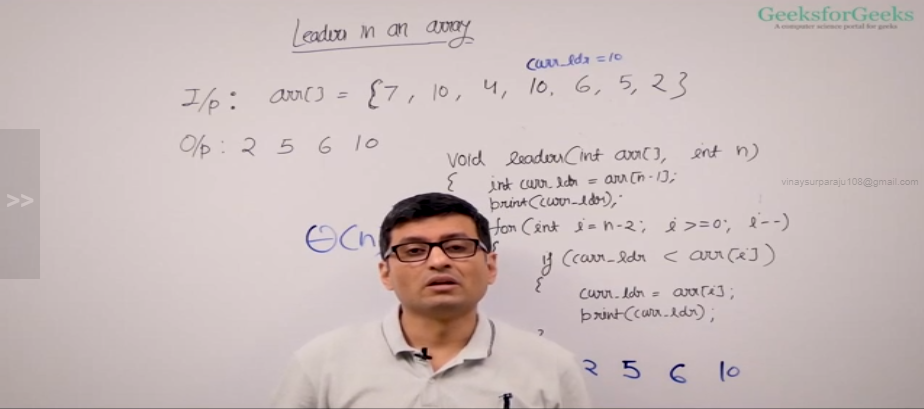 GeeksforGeeks
A computer science portal for geeks
Leaders in an array
curr_ldr = 10
I/p : arr[] = {7, 10, 4, 10, 6, 5, 2}
O/p : 2 5 6 10
void leaders(int arr[], int n)
{ int curr_ldr = arr[n-1];
print(curr_ldr);
for(int i=n-2; i>=0; i--)
{
if (curr_ldr < arr[i])
{
curr_ldr = arr[i];
print(curr_ldr);
Θ(n
2 5 6 10
vinaysurparaju108@gmail.com
>>